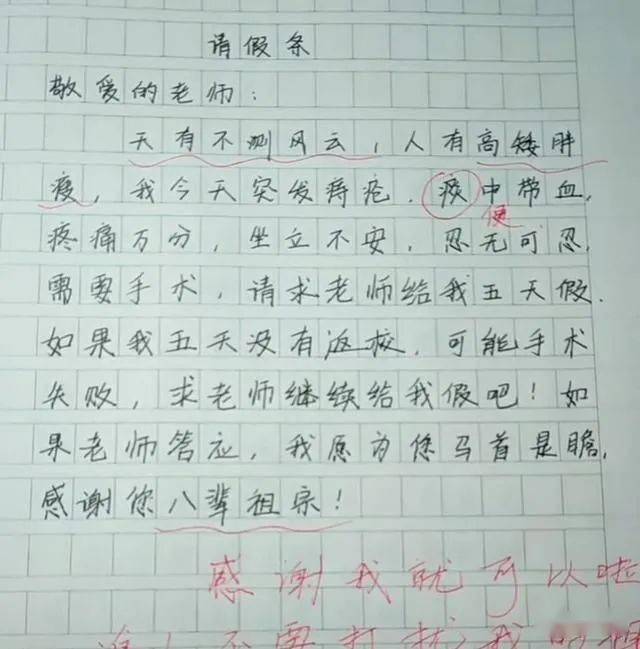 请假条
敬爱的老师：
天有不测风云，人有高矮胖
瘦，我今天突发痔疮．痰中带血，
便
疼痛万分，坐立不安，忍无可忍，
需要手术，请求老师给我五天假．
如果我五天没有返校，可能手术
失败，求老师继续给我假吧！如
果老师答应，我愿为您马首是瞻，
感谢您八辈祖宗！
感谢我就可以啦
不要打扰我的